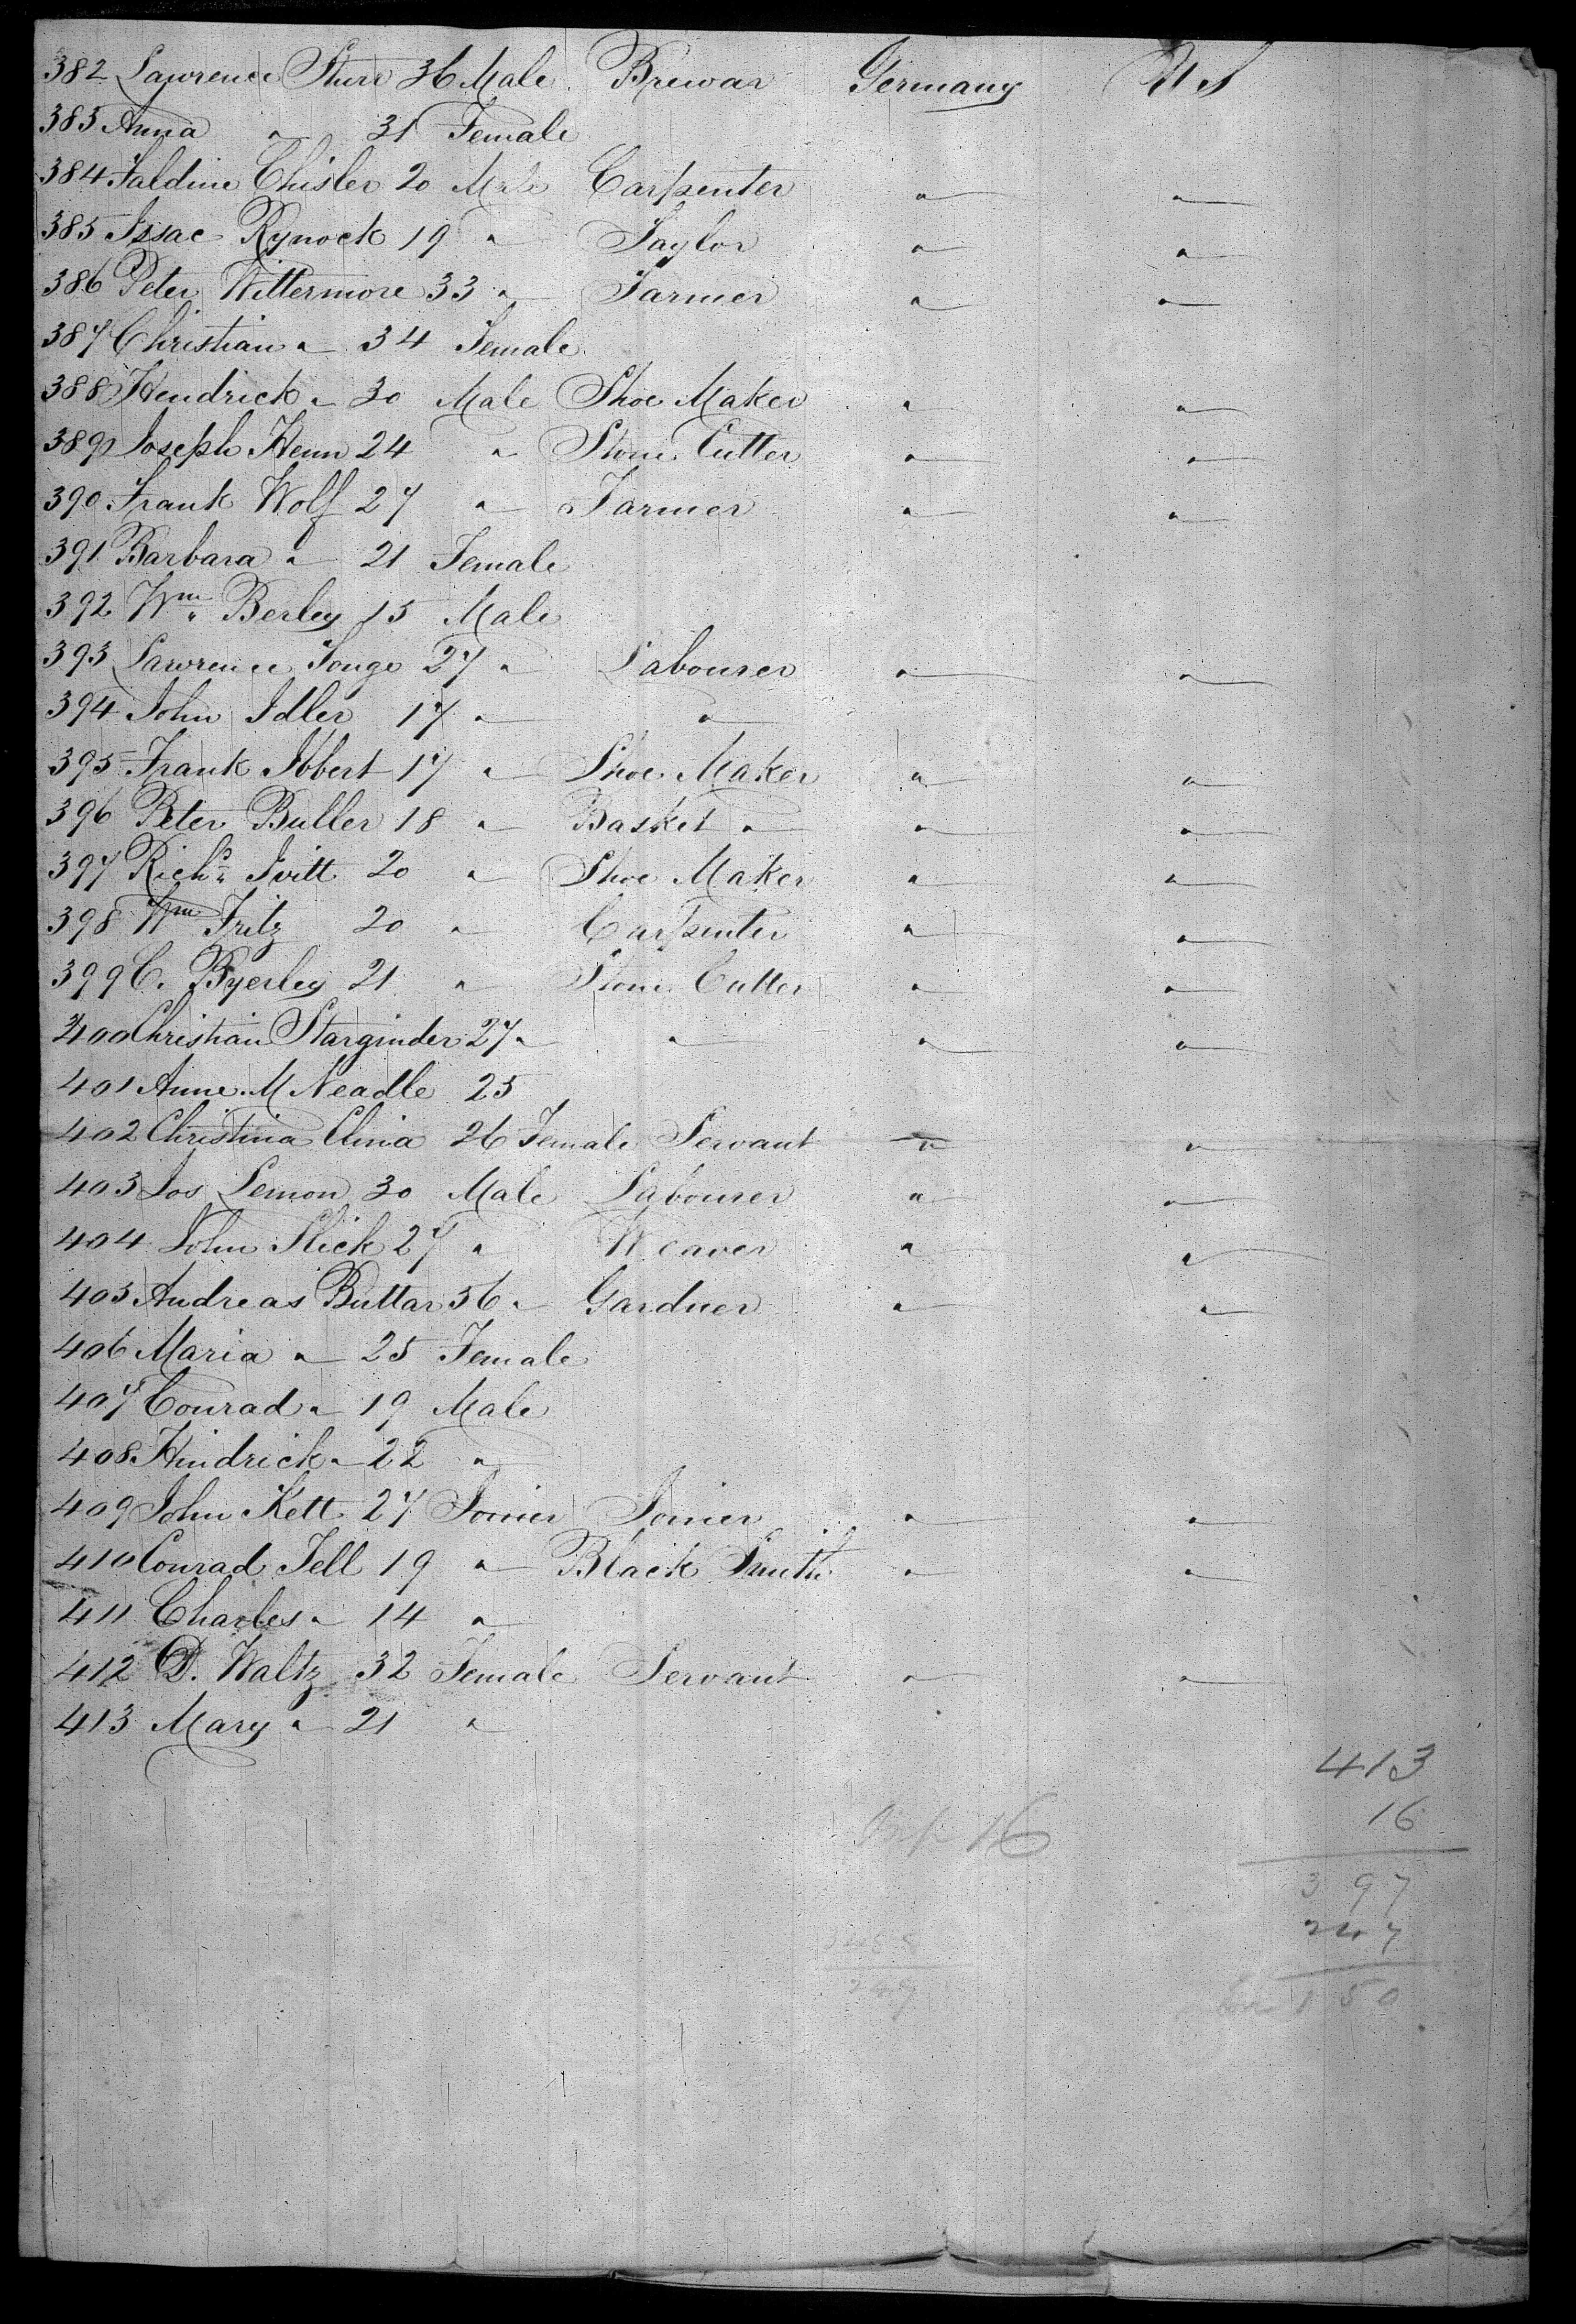 382 Lawrence Sturr 36 Male Brewar Germany U S
383 Anna " 31 Female
384 Faldine Chisler 20 Male Carpenter " "
385 Issac Rynock 19 " Taylor " "
386 Peter Wittermore 33 " Farmer " "
387 Christian " 34 Female
388 Hendrick " 30 Male Shoe Maker " "
389 Joseph Henn 24 " Stone Cutter " "
390 Frank Wolf 27 " Farmer " "
391 Barbara " 21 Female
392 Wm Berley 15 Male
393 Lawrence Songe 27 " Labourer " "
394 John Idler 17 " "
395 Frank Ibbert 17 " Shoe Maker " "
396 Peter Buller 18 " Basket " " "
397 Richd Ivitt 20 " Shoe Maker " "
398 Wm Fritz 20 " Carpenter " "
399 C. Byerley 21 " Stone Cutter " "
400 Christian Starginder 27 " " " "
401 Anne M Neadle 25
402 Christina Clinia 26 Female Servant " "
403 Jos Lemon 30 Male Labourer " "
404 John Slick 27 " Weaver " "
405 Andreas Buttar 56 " Gardner " "
406 Maria " 25 Female
407 Conrad " 19 Male
408 Hindrick " 22 "
409 John Kett 27 Joiner Joiner " "
410 Conrad Tell 19 " Black Smith " "
411 Charles " 14 "
412 D. Waltz 32 Female Servant " "
413 Mary " 21 "
413
16
16
397
247
247
150